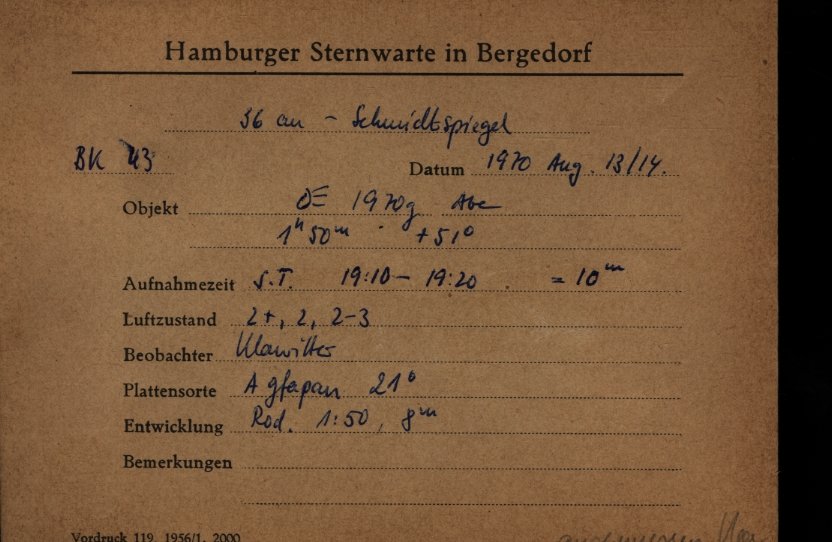 Hamburger Sternwarte in Bergedorf
36 cm - Schmidtspiegel
BK 43
Datum 1970 Aug. 13/14.
Objekt 1970g Abe
1ʰ 50ᵐ +51°
Aufnahmezeit S.T. 19:10 - 19:20 = 10ᵐ
Luftzustand 2+, 2, 2-3
Beobachter Klawitter
Plattensorte Agfapan 21°
Entwicklung Rod. 1:50, 8ᵐ
Bemerkungen
Vordruck 119 1956/1 2000